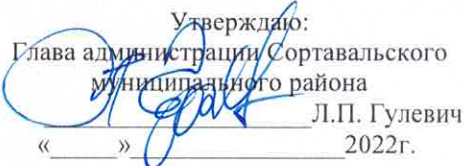 Утверждаю:
Глава администрации Сортавальского
муниципального района
____________________Л.П. Гулевич
«_____»________________2022г.